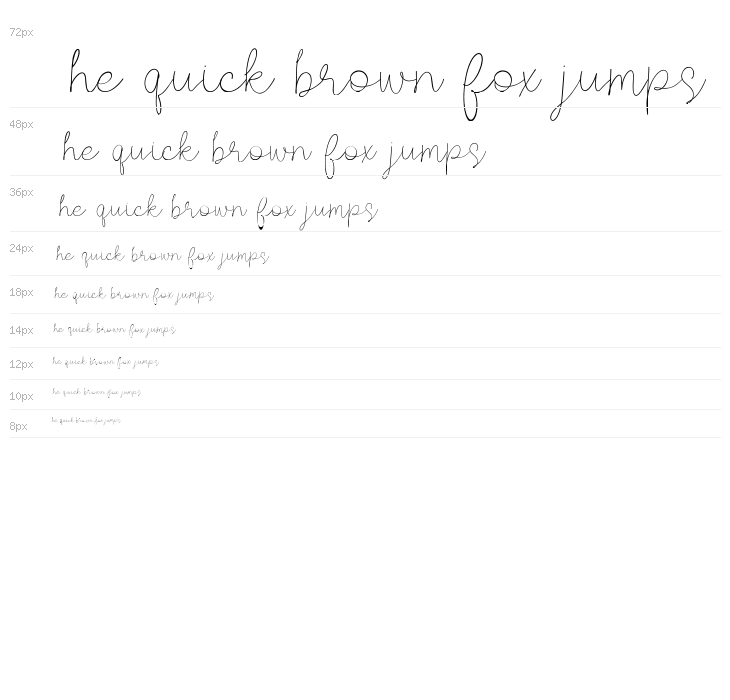 72px
he quick brown fox jumps
48px
he quick brown fox jumps
36px
he quick brown fox jumps
24px
he quick brown fox jumps
18px
he quick brown fox jumps
14px
he quick brown fox jumps
12px
he quick brown fox jumps
10px
he quick brown fox jumps
8px
he quick brown fox jumps